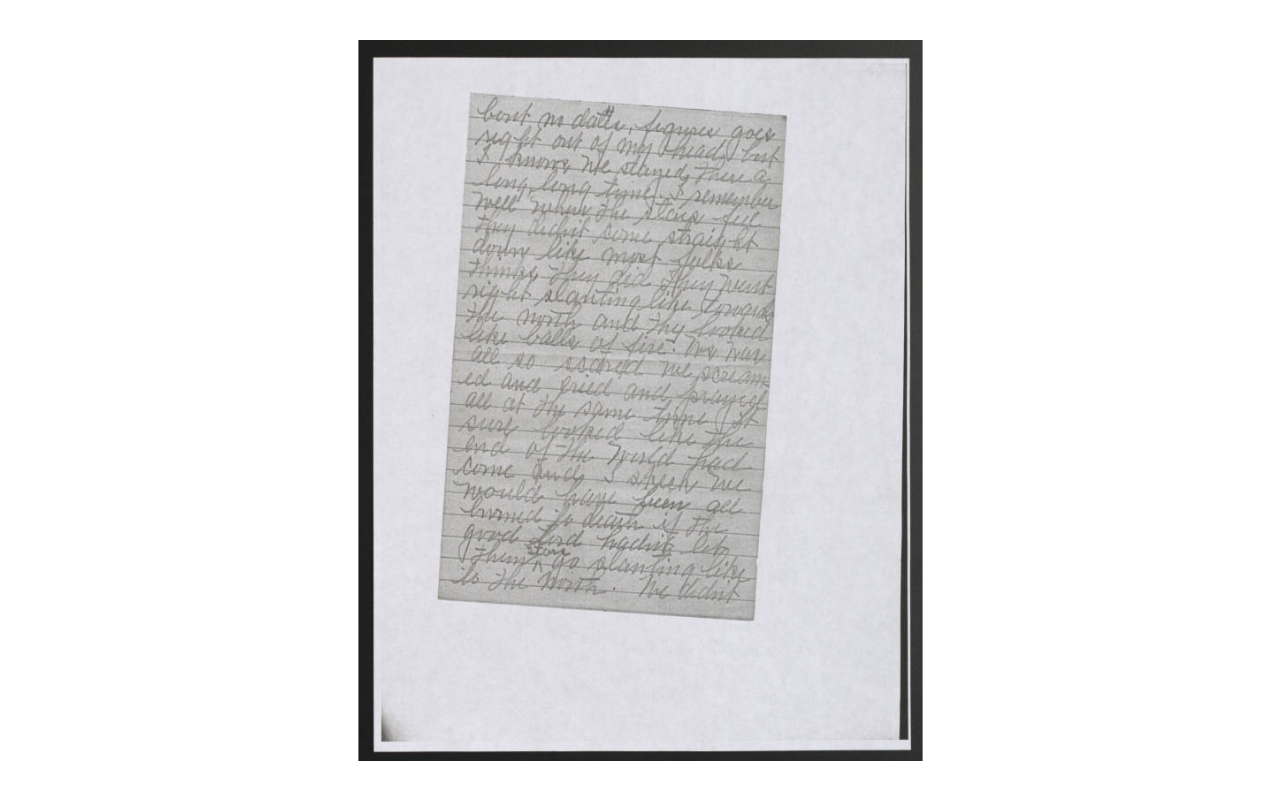 bout no datts, figures goes
right out of my head, but
I knows we stayed there a
long, long time. I remember
well when the stars fell
they didn't come straight
down like most folks
things they did They went
right slanting like towards
the north and they looked
like balls of fire. We was
all so scared we scream
ed and cried and prayed
all at the same time It
sure looked like the
end of the World had
come and I speck we
would have been all
burned to death if the
good Lord hadnt let
them stars go slanting like
to the North. We didn't